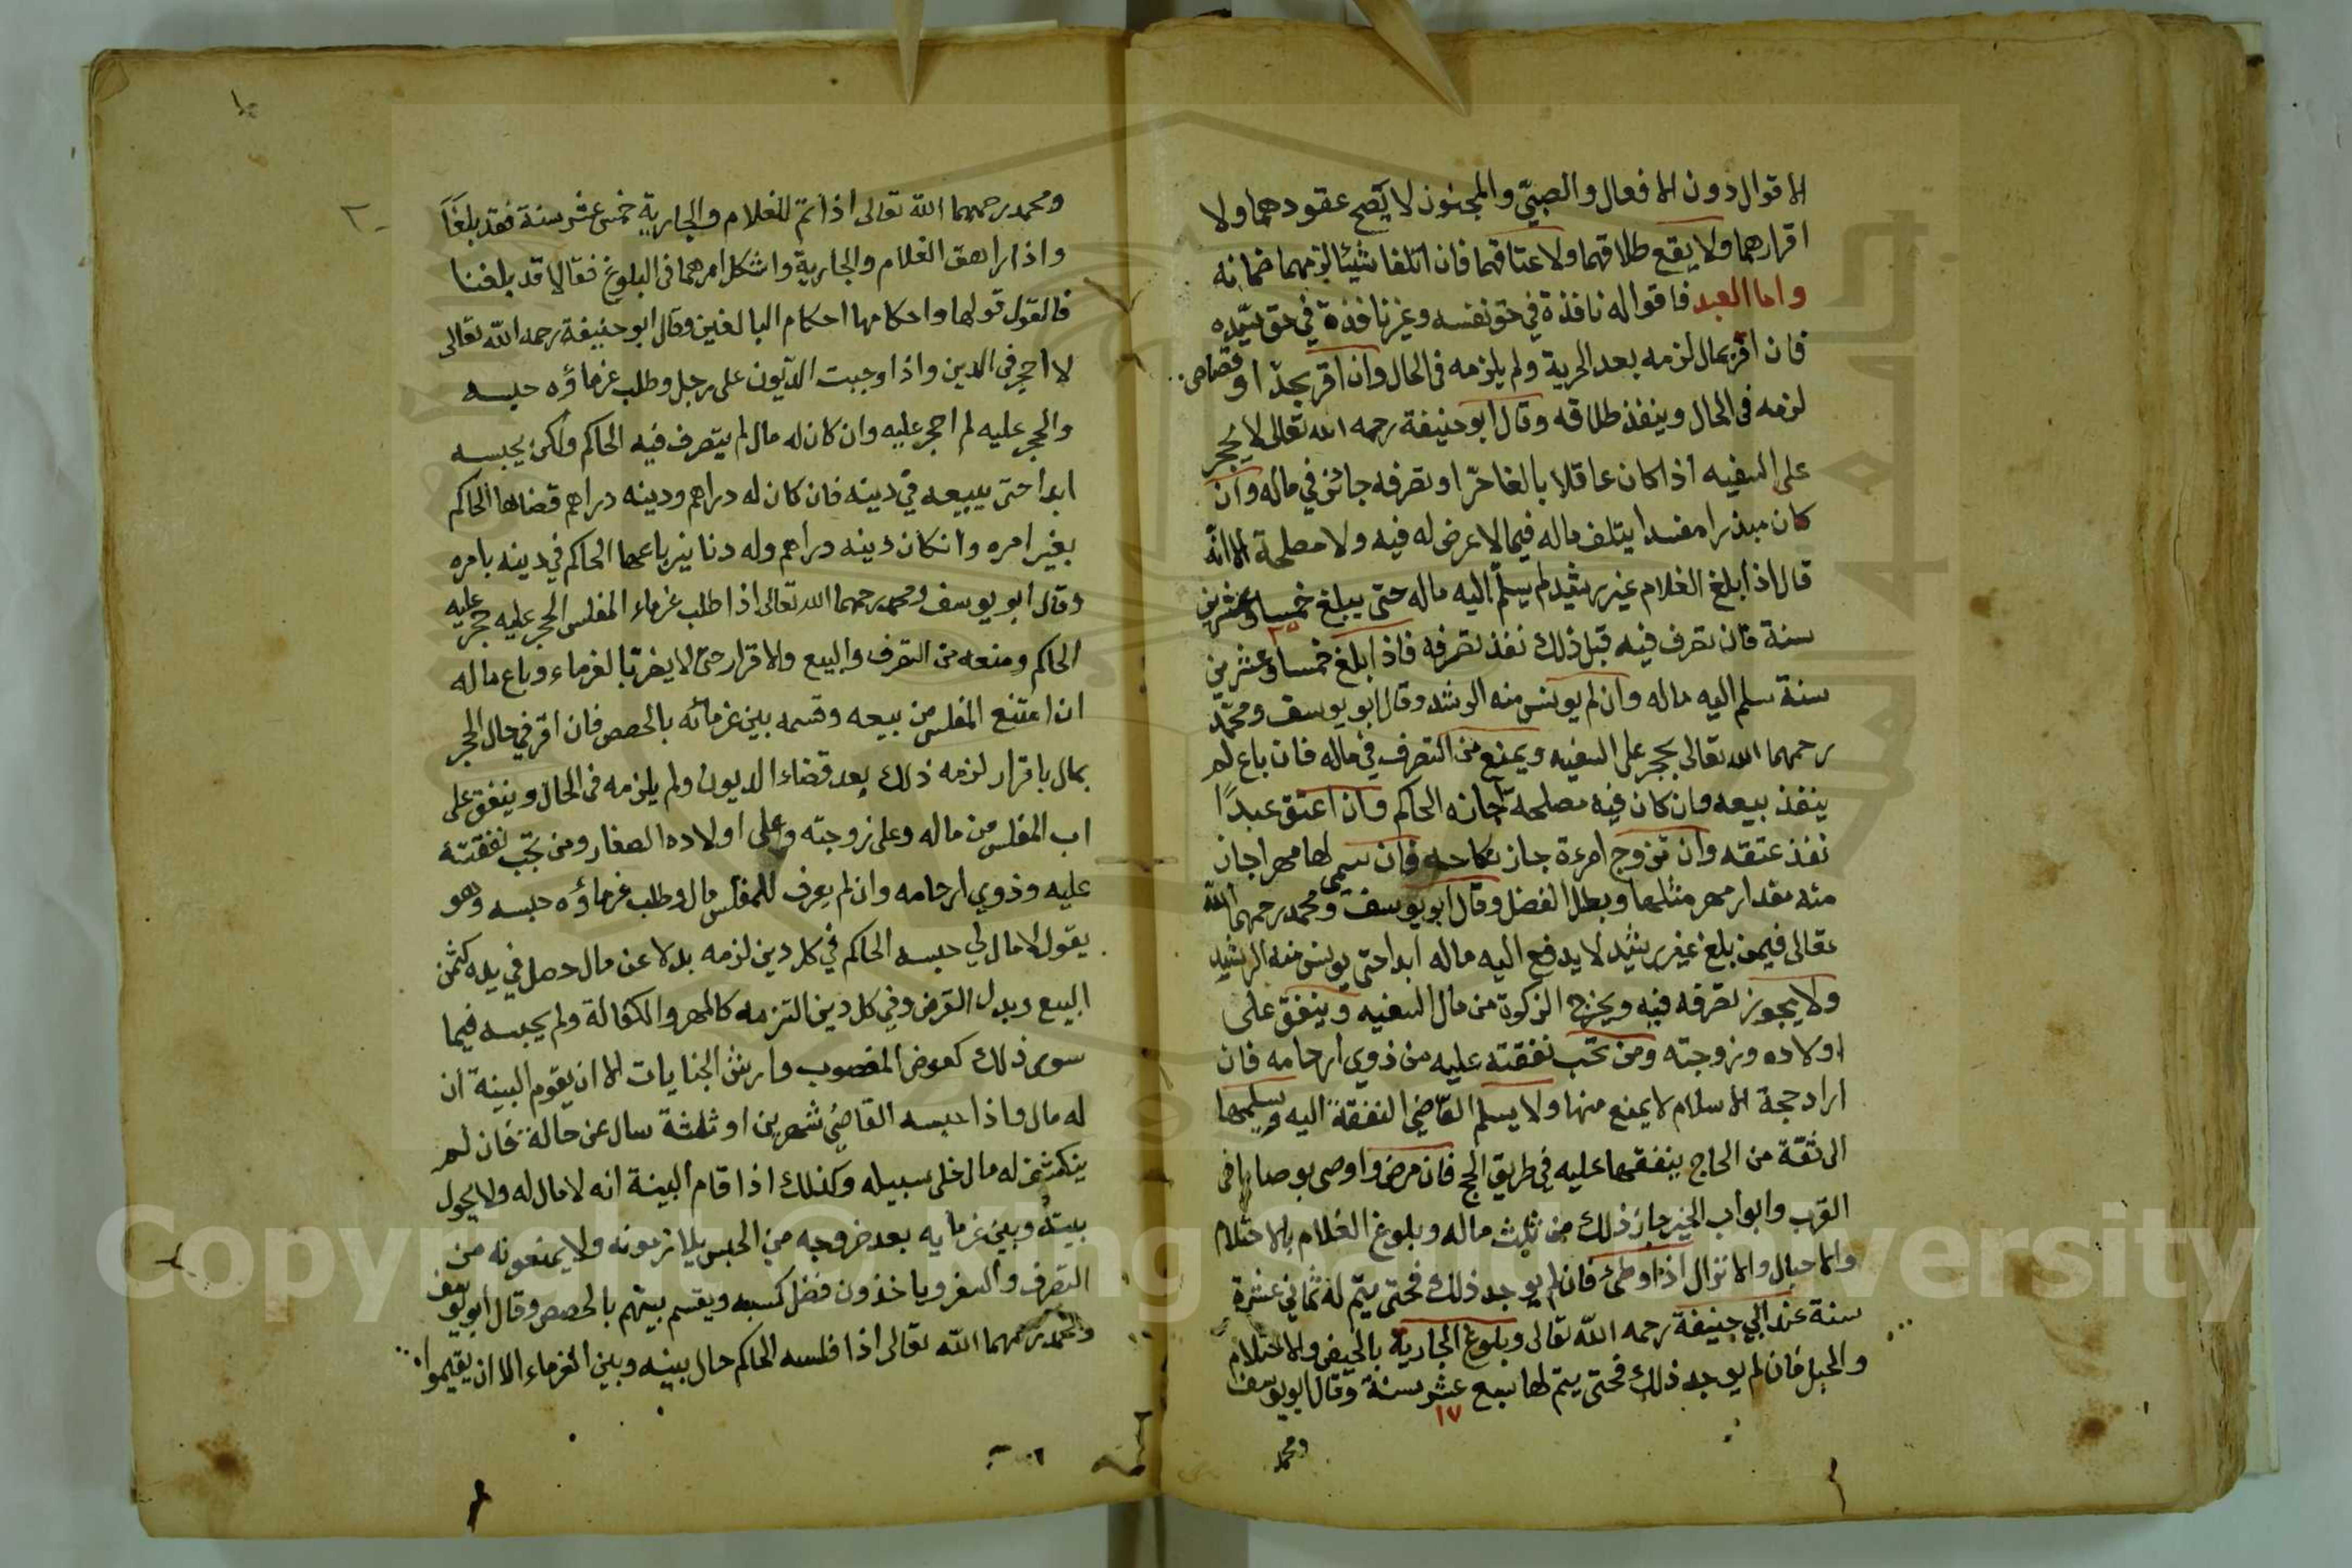 الاقوال دون الافعال والصبيّ والمجنون لا يصح عقودهما ولا
اقرارهما ولا يقع طلاقهما ولا عتاقهما فان اتلفا شيئا لزمهما ضمانه
واما العبد فاقواله نافذة في حق نفسه وغير نافذة في حق سيّده
فان اقر بمال لزمه بعد الحرية ولم يلزمه فى الحال وان اقر بحدّ او قصاص
لزمه فى الحال وينفذ طلاقه وقال ابو حنيفة رحمه الله تعالى لا يحجر
على السفيه اذا كان عاقلا بالغا حرّا وتصرفه جائز في ماله وان
كان مبذرا مفسدا يتلف ماله فيما لا غرض له فيه ولا مصلحة الا انّه
قال اذا بلغ الغلام غير رشيد لم يسلّم اليه ماله حتى يبلغ خمسا وعشرين
٢٥
سنة فان تصرف فيه قبل ذلك نفذ تصرفه فاذا بلغ خمسا وعشرين
سنة سلم اليه ماله وان لم يونس منه الرشد وقال ابو يوسف ومحمّد
رحمهما الله تعالى يحجر على السفيه ويمنع من التصرف في ماله فان باع لم
ينفذ بيعه وان كان فيه مصلحة اجازه الحاكم وان اعتق عبدًا
نفذ عتقه وان تزوج امرءة جاز نكاحه فان سمى لها مهرا جاز
منه مقدار مهر مثلها وبطل الفضل وقال ابو يوسف ومحمد رحمهما الله
تعالى فيمن بلغ غير رشيد لا يدفع اليه ماله ابدا حتى يونس منه الرشيد
ولا يجوز تصرفه فيه ويخرج الزكوة من مال السفيه وينفق على
اولاده وزوجته ومن تجب نفقته عليه من ذوي ارحامه فان
اراد حجة الاسلام لا يمنع منها ولا يسلم القاضي النفقة اليه ويسلمها
الى ثقة من الحاج ينفقها عليه في طريق الحج فان مرض واوصى بوصايا فى
القرب وابواب الخير جاز ذلك من ثلث ماله وبلوغ الغلام بالاحتلام
والاحبال والانزال اذا وطئ فان لم يوجد ذلك فحتى يتم له ثماني عشرة
سنة عند ابي حنيفة رحمه الله تعالى وبلوغ الجارية بالحيض والاحتلام
والحبل فان لم يوجد ذلك فحتى يتم لها سبع عشر سنة وقال ابو يوسف
١٧
ومحمد
ومحمد رحمهما الله تعالى اذا تم للغلام والجارية خمس عشر سنة فقد بلغا
واذا راهق الغلام والجارية واشكل امرهما فى البلوغ فقالا قد بلغنا
فالقول قولهما واحكامهما احكام البالغين وقال ابو حنيفة رحمه الله تعالى
لا احجر فى الدين واذا وجبت الدّيون على رجل وطلب غرماؤه حبسه
والحجر عليه لم احجر عليه وان كان له مال لم يتصرف فيه الحاكم ولكن يحبسه
ابدا حتى يبيعه في دينه فان كان له دراهم ودينه دراهم قضاها الحاكم
بغير امره وان كان دينه دراهم وله دنانير باعها الحاكم في دينه بامره
وقال ابو يوسف ومحمد رحمهما الله تعالى اذا طلب غرماء المفلس الحجر عليه حجر عليه
الحاكم ومنعه من التصرف والبيع والاقرار حتى لا يضر بالغرماء وباع ماله
ان امتنع المفلس من بيعه وقسمه بين غرمائه بالحصص فان اقر في حال الحجر
بمال باقرار لزمه ذلك بعد قضاء الديون ولم يلزمه فى الحال وينفق على
اب المفلس من ماله وعلى زوجته وعلى اولاده الصغار ومن تجب نفقته
عليه وذوي ارحامه وان لم يعرف للمفلس مال وطلب غرماؤه حبسه وهو
يقول لا مال لي حبسه الحاكم في كل دين لزمه بدلا عن مال حصل في يده كثمن
البيع وبدل القرض وفي كل دين التزمه كالمهر والكفالة ولم يحبسه فيما
سوى ذلك كعوض المغصوب وارش الجنايات الا ان يقوم البينة ان
له مال واذا حبسه القاضي شهرين او ثلثة سال عن حالة فان لم
ينكشف له مال خلى سبيله وكذلك اذا اقام البينة انه لا مال له ولا يحول
بينه وبين غرمايه بعد خروجه من الحبس يلازمونه ولا يمنعونه من
التصرف والسفر وياخذون فضل كسبه ويقسم بينهم بالحصص وقال ابو يوسف
ومحمد رحمهما الله تعالى اذا فلسه الحاكم حال بينه وبين الغرماء الا ان يقيموا
Copyright © King Saud University